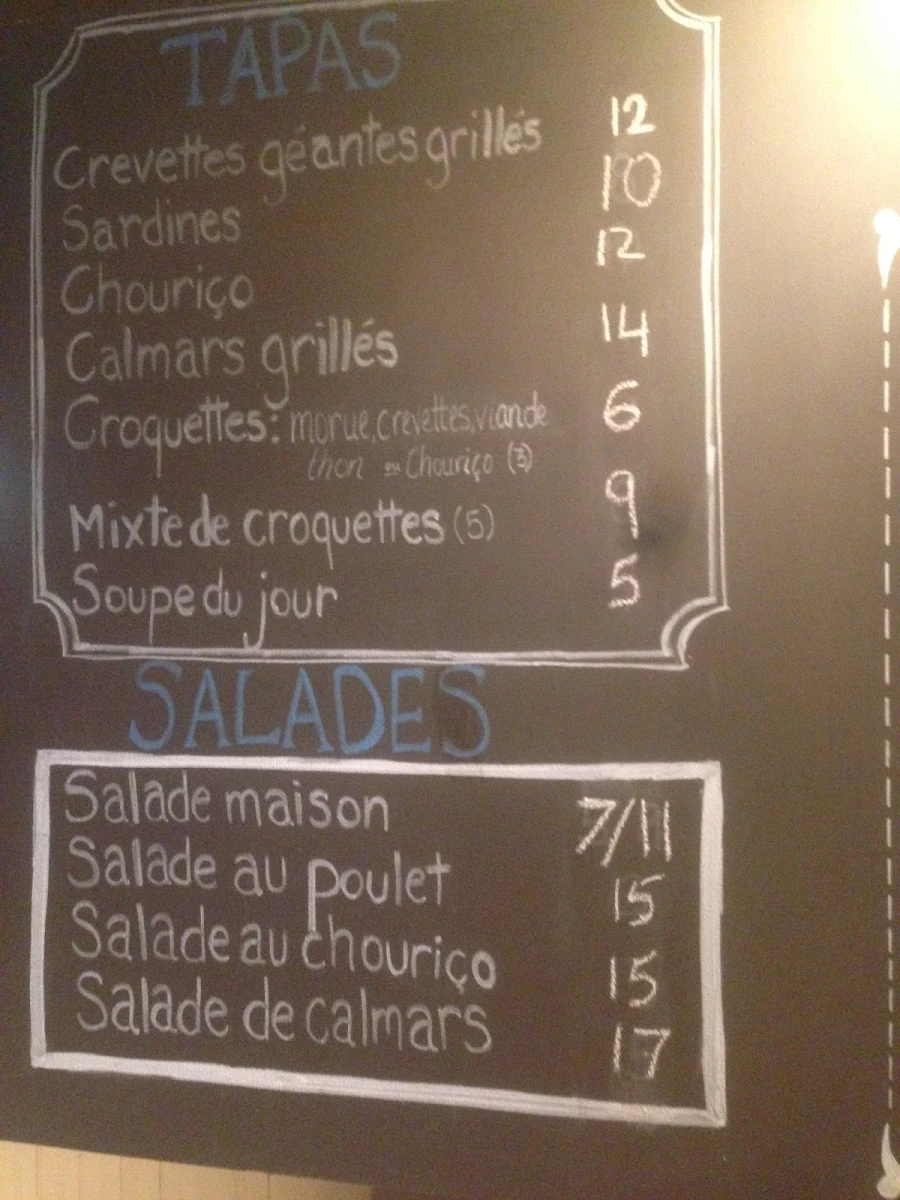 TAPAS
Crevettes géantes grillés 12
Sardines 10
Chouriço 12
Calmars grillés 14
Croquettes: morue, crevettes, viande 6
thon ou Chouriço (3)
Mixte de croquettes (5) 9
Soupe du jour 5
SALADES
Salade maison 7/11
Salade au poulet 15
Salade au chouriço 15
Salade de calmars 17